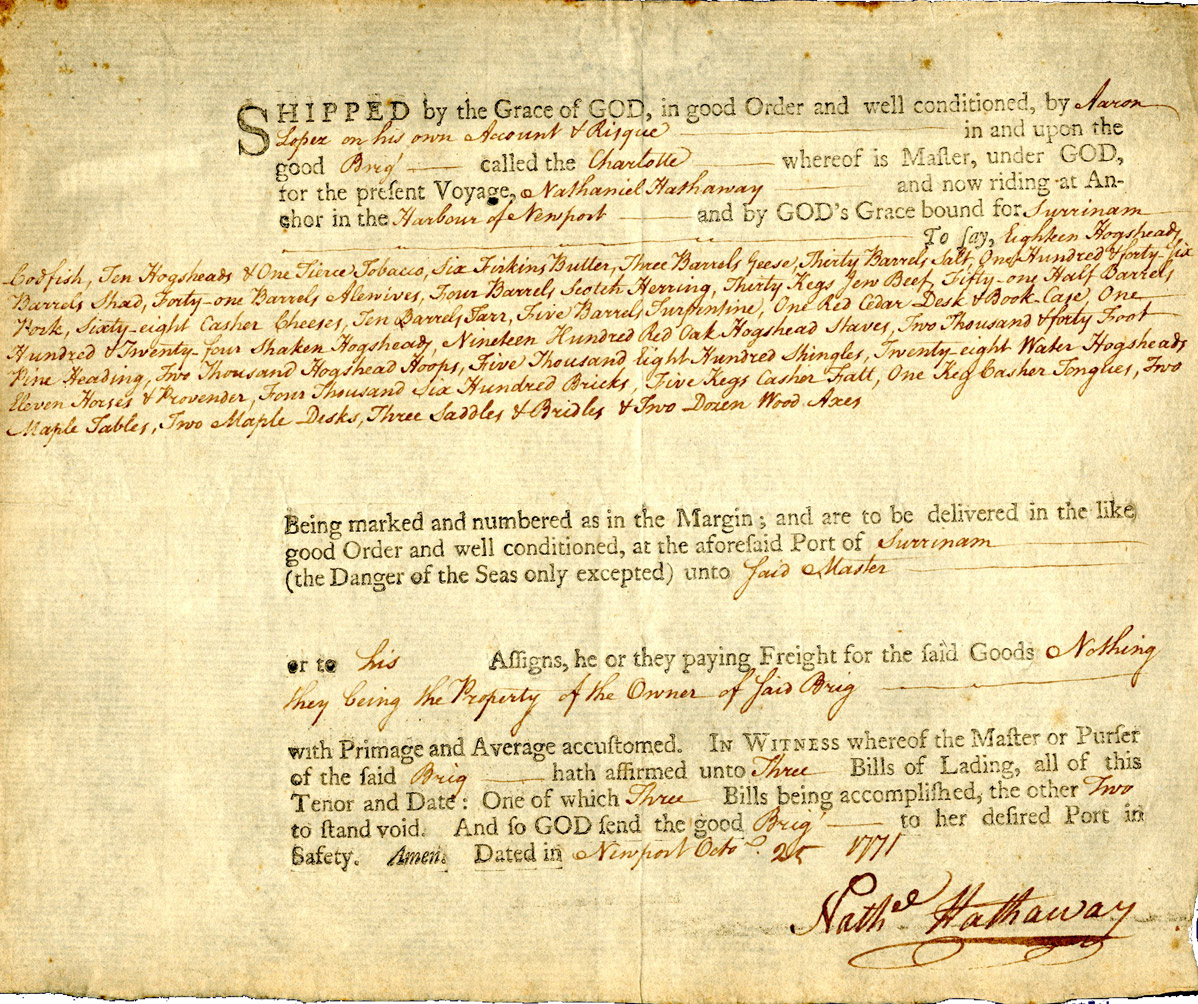 SHIPPED by the Grace of GOD, in good Order and well conditioned, by Aaron
Lopez on his own Account & Risque in and upon the
good Brig called the Charlotte whereof is Maſter, under GOD,
for the preſent Voyage, Nathaniel Hathaway and now riding at An-
chor in the Harbour of Newport and by GOD's Grace bound for Surrinam
To ſay, Eighteen Hogsheads
Codfish, Ten Hogsheads & One Tierce Tobacco, Six Firkins Butter, Three Barrels Geese, Thirty Barrels Salt, One Hundred & forty-Six
Barrels Shad, Forty-one Barrels Alewives, Four Barrels Scotch Herring, Thirty Kegs Jew Beef, Fifty-one Half Barrels
Pork, Sixty-eight Casher Cheeses, Ten Barrels Tarr, Five Barrels Turpintine, One Red Cedar Desk & Book-Case, One
Hundred & Twenty-four Shaken Hogsheads, Nineteen Hundred Red Oak Hogshead Staves, Two Thousand & forty Foot
Pine Heading, Two Thousand Hogshead Hoops, Five Thousand Eight Hundred Shingles, Twenty-eight Water Hogsheads
Eleven Horses & Provender, Four Thousand Six Hundred Bricks, Five Kegs Casher Fatt, One Keg Casher Tongues, Two
Maple Tables, Two Maple Desks, Three Saddles & Bridles & Two Dozen Wood Axes
Being marked and numbered as in the Margin; and are to be delivered in the like
good Order and well conditioned, at the aforeſaid Port of Surrinam
(the Danger of the Seas only excepted) unto ſaid Master
or to his Aſſigns, he or they paying Freight for the ſaid Goods Nothing
they being the Property of the Owner of ſaid Brig
with Primage and Average accuſtomed. IN WITNESS whereof the Maſter or Purſer
of the ſaid Brig hath affirmed unto Three Bills of Lading, all of this
Tenor and Date: One of which Three Bills being accompliſhed, the other Two
to ſtand void. And ſo GOD ſend the good Brig to her deſired Port in
Safety. Amen. Dated in Newport Octo. 25 1771
Nathel Hathaway